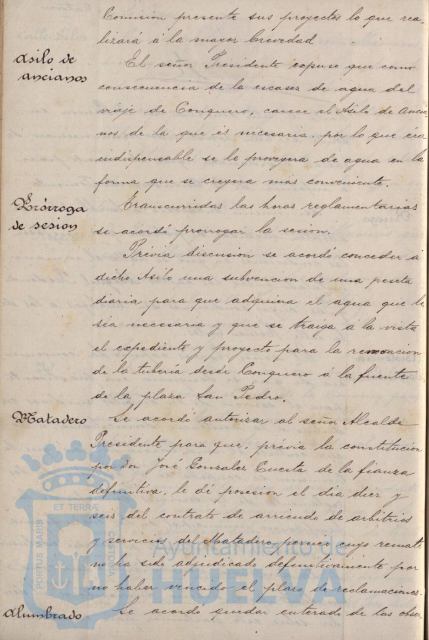 Comisión presente sus proyectos lo que rea-
lizará á la mayor brevedad.
Asilo de
ancianos
El señor Presidente expuso que como
consecuencia de la escasez de agua del
viaje de Conquero, carece el Asilo de Ancia-
nos de la que es necesaria, por lo que era
indispensable se le proveyera de agua en la
forma que se creyera mas conveniente.
Prórroga
de sesion
Transcurridas las horas reglamentarias
se acordó prorrogar la sesion.
Previa discusion se acordó conceder á
dicho Asilo una subvencion de una peseta
diaria para que adquiera el agua que le
sea necesaria y que se traiga a la vista
el expediente y proyecto para la renovacion
de la tubería desde Conquero á la fuente
de la plaza San Pedro.
Matadero
Se acordó autorizar al señor Alcalde
Presidente para que, prévia la constitución
por don José Gonzalez Cuesta de la fianza
definitiva, le dé posesion el dia diez y
seis del contrato de arriendo de arbitrios
y servicios del Matadero, cuyo remate
no ha sido adjudicado definitivamente por
no haber vencido el plazo de reclamaciones.
Alumbrado
Se acordó quedar enterado de las obse
PORTUS MARIS ET TERRAE
Ayuntamiento de
HUELVA